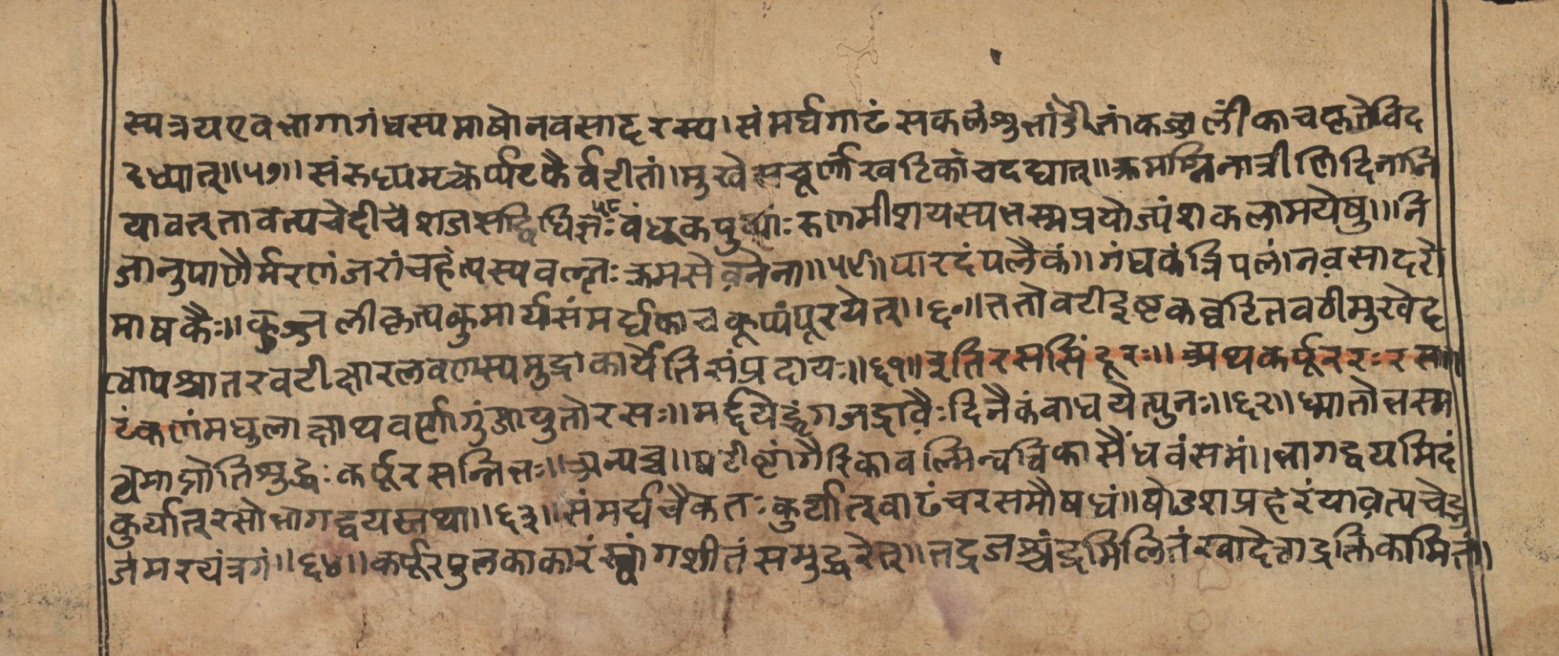 स्पत्रयएवभागागंधस्पमाषोनवसादरस्प।संमर्घगाढंसकलंशुभांडेतांकज्जलींकाचकृतेविद
दध्यात्॥५७॥संरुध्पमृत्कर्प्पटकैर्वटीतां।मुखेसचूर्णांखटिकांचदद्यात्॥क्रमाग्निनात्रीणिदिनानि
यावत्तावत्पचेद्दी
बंधूकपुष्पा
रुणमीशयस्पभस्मप्रयोज्पंशकलामयेषु॥नि
जानुपाणैर्मरणंजरांचहंत्पस्पवल्लःक्रमसेवनेना॥५९॥पारदंपलैकं॥गंधकंत्रिपलांनवसादरो
माषकैः॥कज्जलीकृत्पकुमार्यसंमर्द्यकाचकूप्पंपूरयेत्॥६०॥ततोवटीइष्टकवटितवठीमुखेद
त्वोपश्चातरवटीक्षारलवणस्पमुद्राकार्येतिसंप्रदायः॥६१॥इतिरससिंदूरः॥अथकर्पूररःरस॥
टंकणंमधुलाक्षाथवर्णागुंजायुतोरसः॥मर्द्दयेद्भृंगजद्रावैःदिनैकंवाधयेत्पुनः॥६२॥ध्मातोभस्म
त्वमाप्नोतिशुद्धःकर्पूरसन्निभः॥अन्पच्च॥षटीष्टांगैरिकावल्मिन्यविकासैंधवंसमं॥भागद्वयमिदं
कुर्यात्रसोभागद्वयस्तथा॥६३॥संमर्द्यचैकतःकुर्यात्खाढंचरसमौषधं॥षोडशप्रहरंयावत्पचेड्ड
जंमरयंत्रगं॥६४॥कर्पूरपुलकाकारंस्वांगशीतंसमुद्धरेत्॥तद्रजश्चंद्रमिलितंखादेत्तद्रक्तिकामितं॥